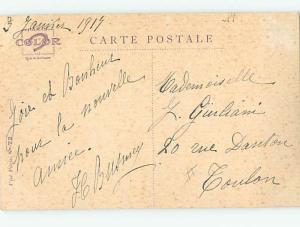 3 Janvier 1919
COLOR
CARTE POSTALE
Joie et Bonheur
pour la nouvelle
année.
Mademoiselle
J. Giuliani
20 rue Danton
Toulon